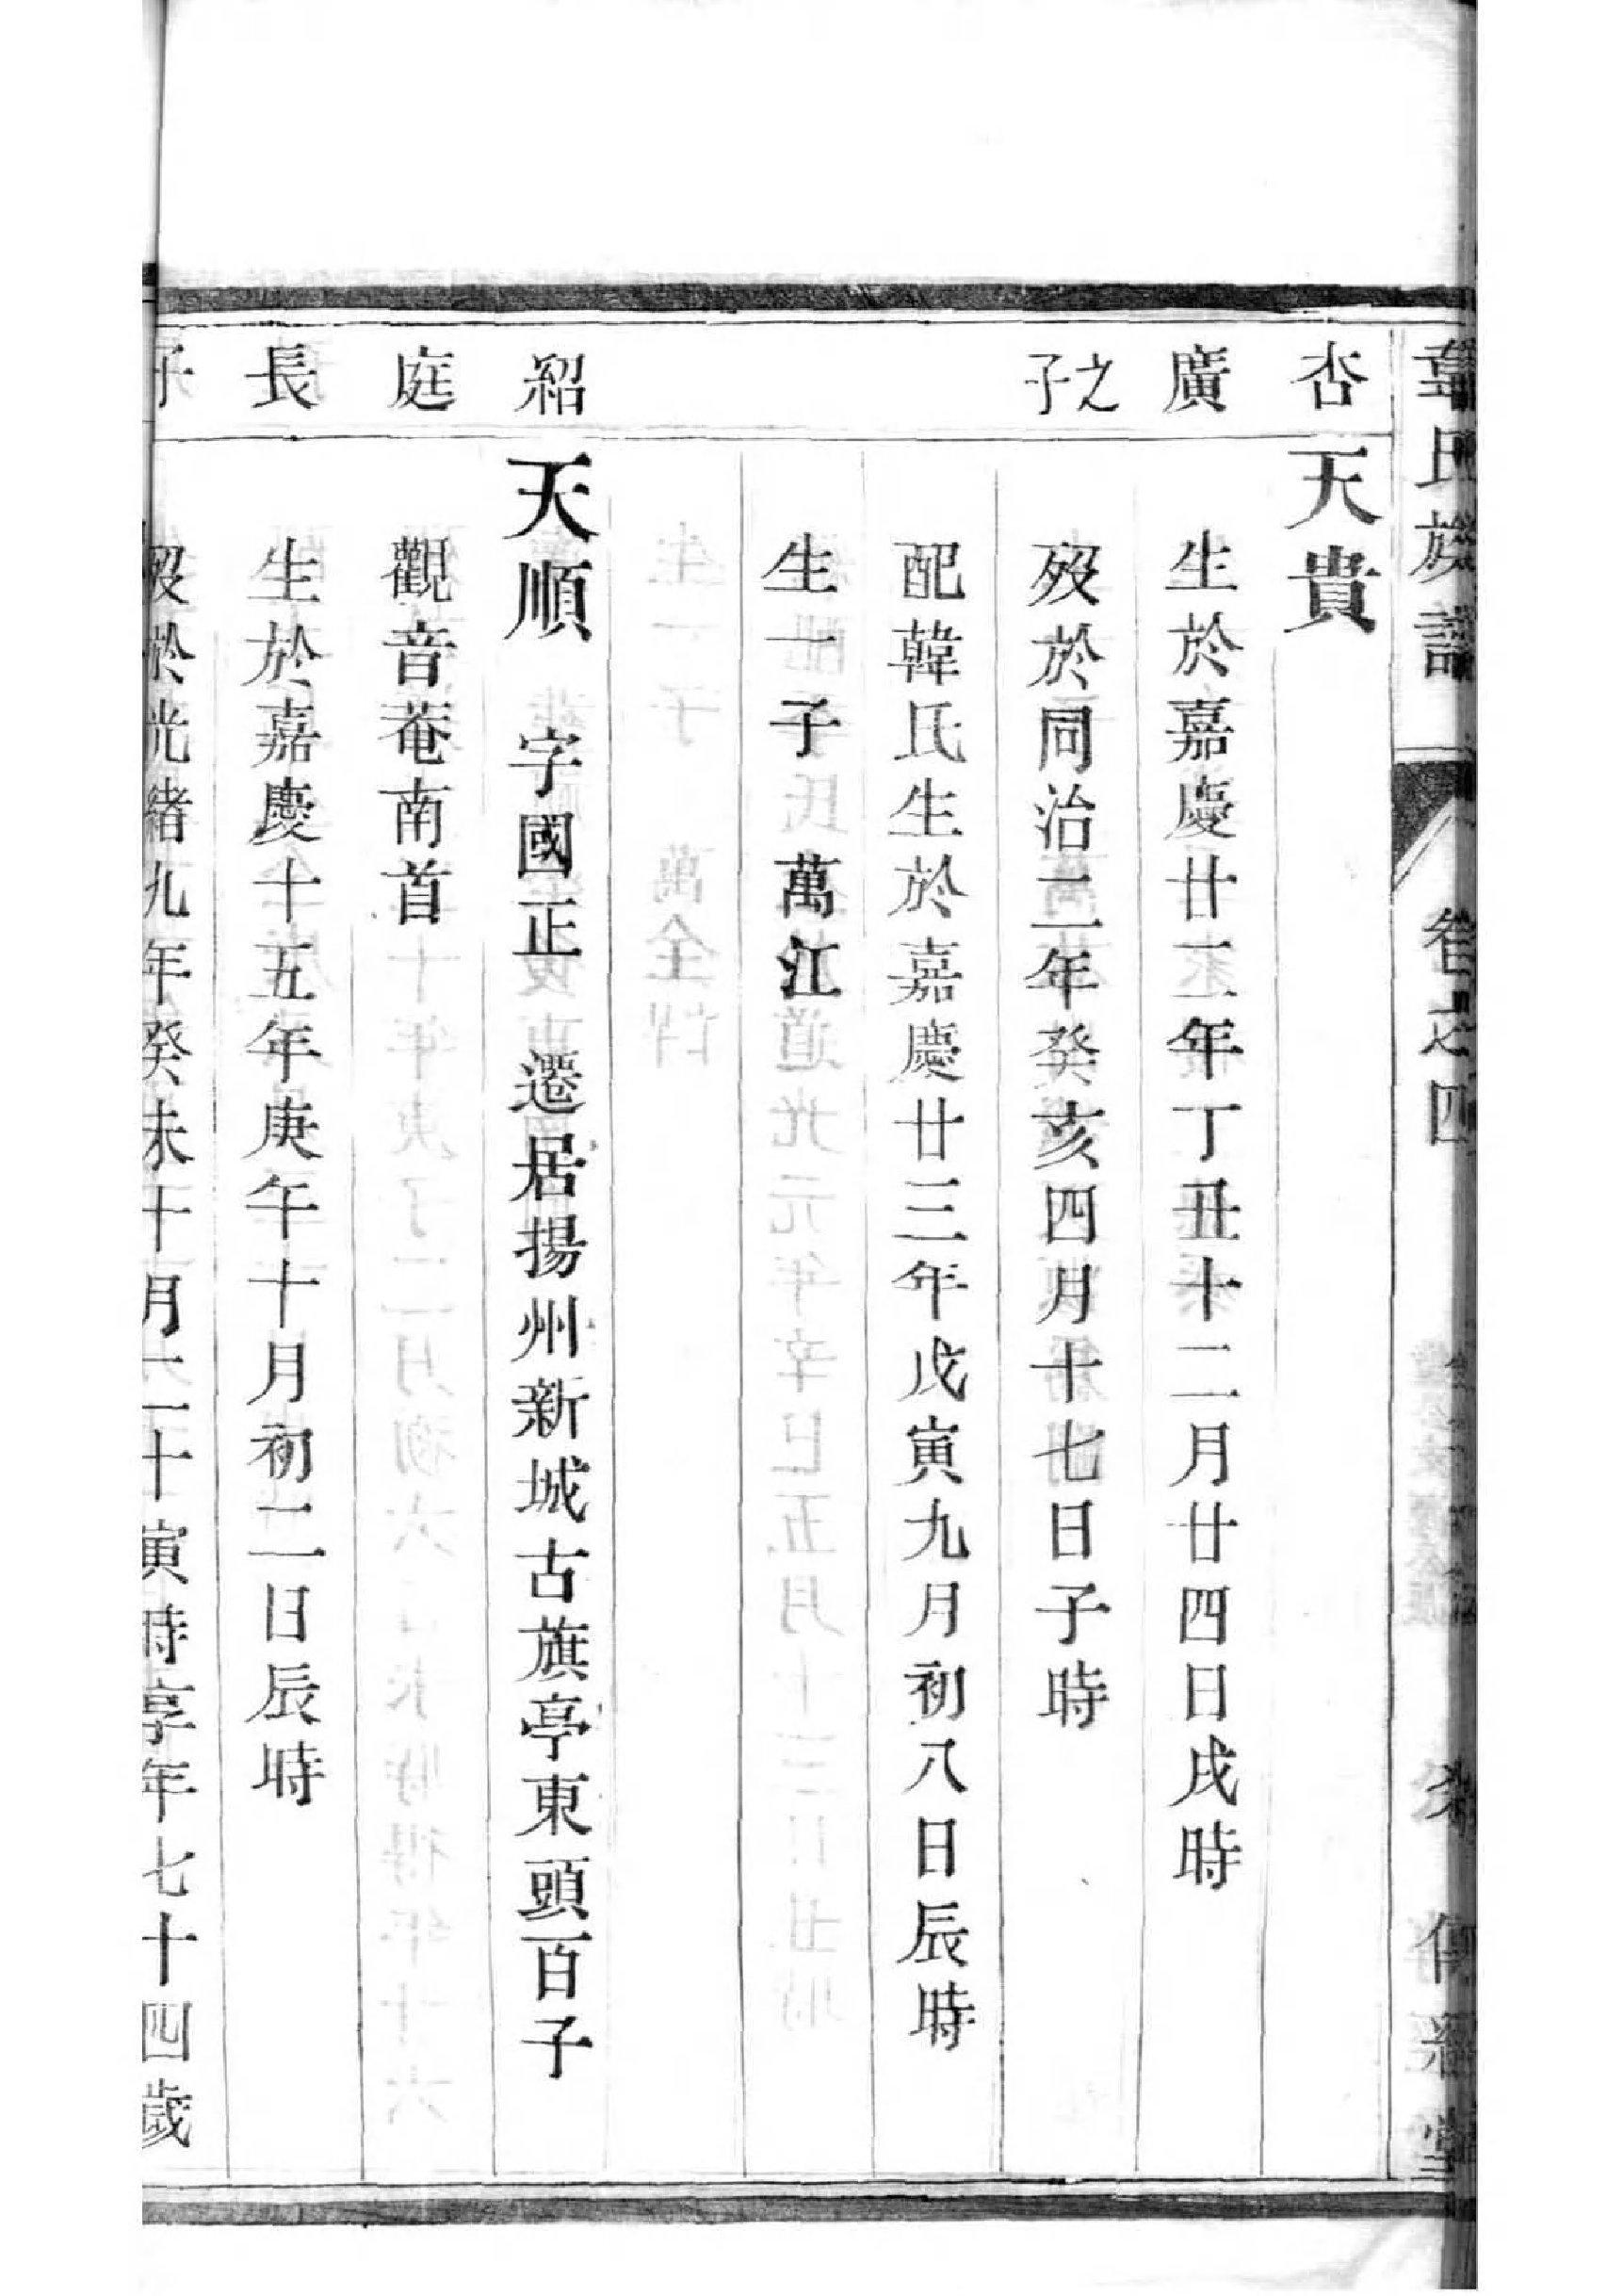 韋氏族譜 卷之四 傳經堂
杏 天貴
廣 生於嘉慶廿二年丁丑十二月廿四日戌時
之子 殁於同治二年癸亥四月十七日子時
配韓氏生於嘉慶廿三年戊寅九月初八日辰時
生一子萬江
紹 天順 字國正 遷居揚州新城古旗亭東頭百子
庭 觀音菴南首
長 生於嘉慶十五年庚午十月初二日辰時
子 殁於光緒九年癸未十月二十寅時享年七十四歲